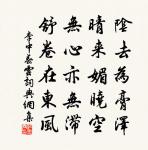 陰去為膏澤
晴来媚曉空
無心亦無滯
舒卷在東風
李中春雲詞典網集